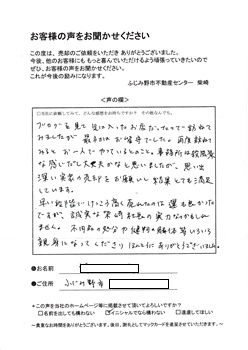 お客様の声をお聞かせください
この度は、売却のご依頼をいただきありがとうございました。
今後、他のお客様にももっと喜んでいただけるよう頑張っていきたいので
ぜひ、お客様の声をお聞かせください。
これが今後の励みになります。
ふじみ野市不動産センター 柴崎
<声の欄>
ブログを見て気に入ったお店だったので訪ねて
みましたが 最初はお留守でした。再度訪ねて
みると お一人でやっているとのこと。事務所は殺風景
な感じだし大丈夫かなと思いましたが、思い出
深い実家の売却をお願いし 結果とても満足
しています。
早い段階でけっこう高く売れたのは 運も良かった
ですが、誠実な柴崎社長の実力なのかもしれ
ません。不用品の処分や建物の解体等いろいろ
親身になってくださり ほんとうにありがとうございました。
●お名前
●ご住所 ふじみ野市
*この声を当社のホームページ等に掲載させて頂いてよろしいですか?
□名前を出しても構わない ☑イニシャルでなら構わない □遠慮してほしい
~貴重なお時間をありがとうございます。後日、謝礼としてマックカードを進呈させていただきます。~